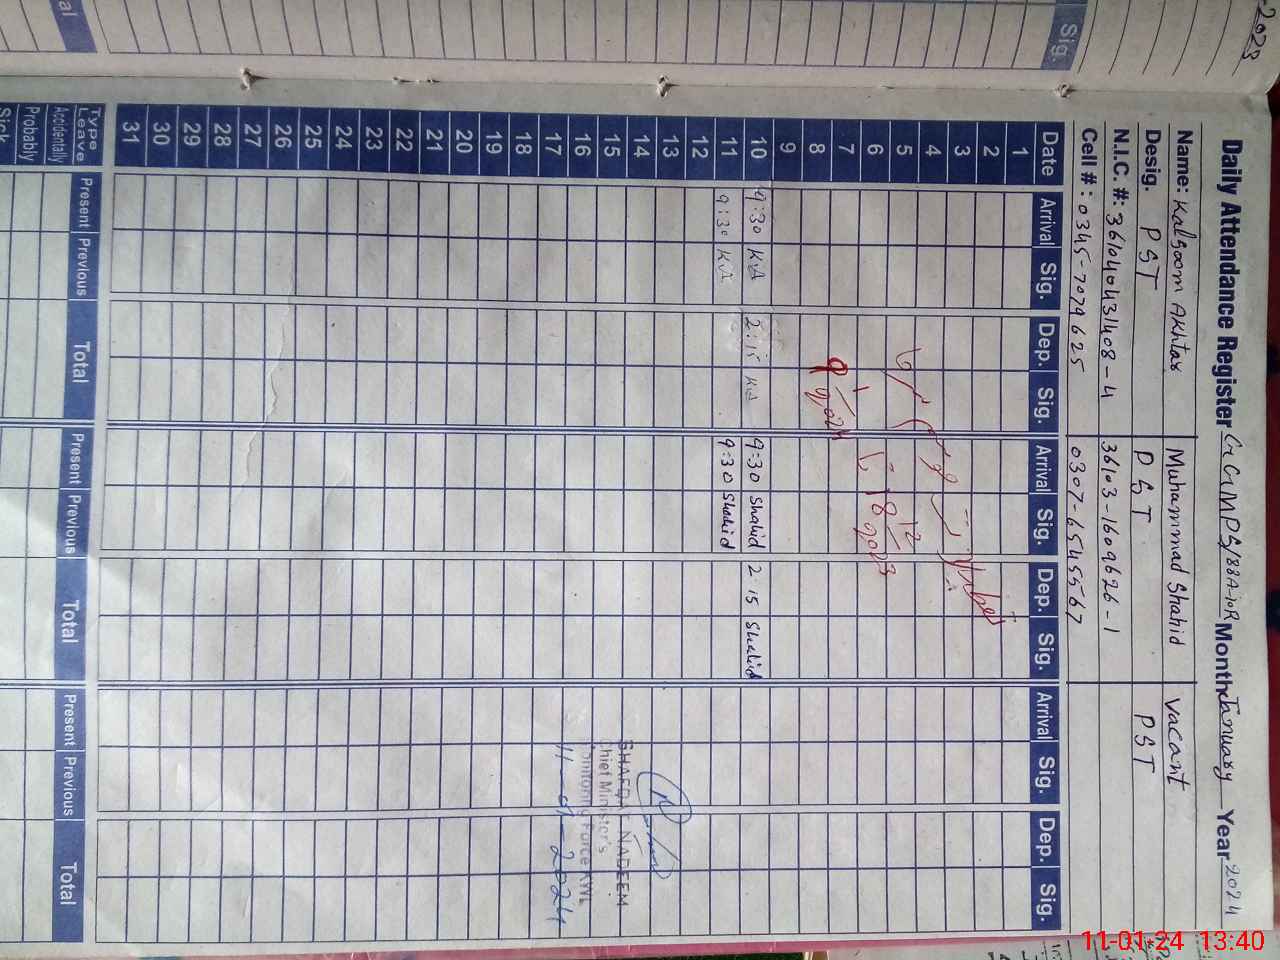 -2023
Sig.
al
Daily Attendance Register GGMPS/88A-10R Month January Year 2024
Name: Kalsoom Akhtar Muhammad Shahid Vacant
Desig. PST PST PST
N.I.C. #: 361040431408-4 36103-1609626-1
Cell #: 0345-7079625 0307-6545567
Date Arrival Sig. Dep. Sig. Arrival Sig. Dep. Sig. Arrival Sig. Dep. Sig.
1
2
3
4
5
6
7
8
9
10 9:30 KA 2:15 KA 9:30 Shahid 2:15 Shahid
11 9:30 KA 9:30 Shahid
12
13
14
15
16
17
18
19
20
21
22
23
24
25
26
27
28
29
30
31
18/12 2023
9/1 2024
SHAFQAT NADEEM
Chief Minister's
Monitoring Force KWL
11-01-2024
Type Leave Present Previous Total Present Previous Total Present Previous Total
Accidentally
Probably
Sick
11-01-24 13:40